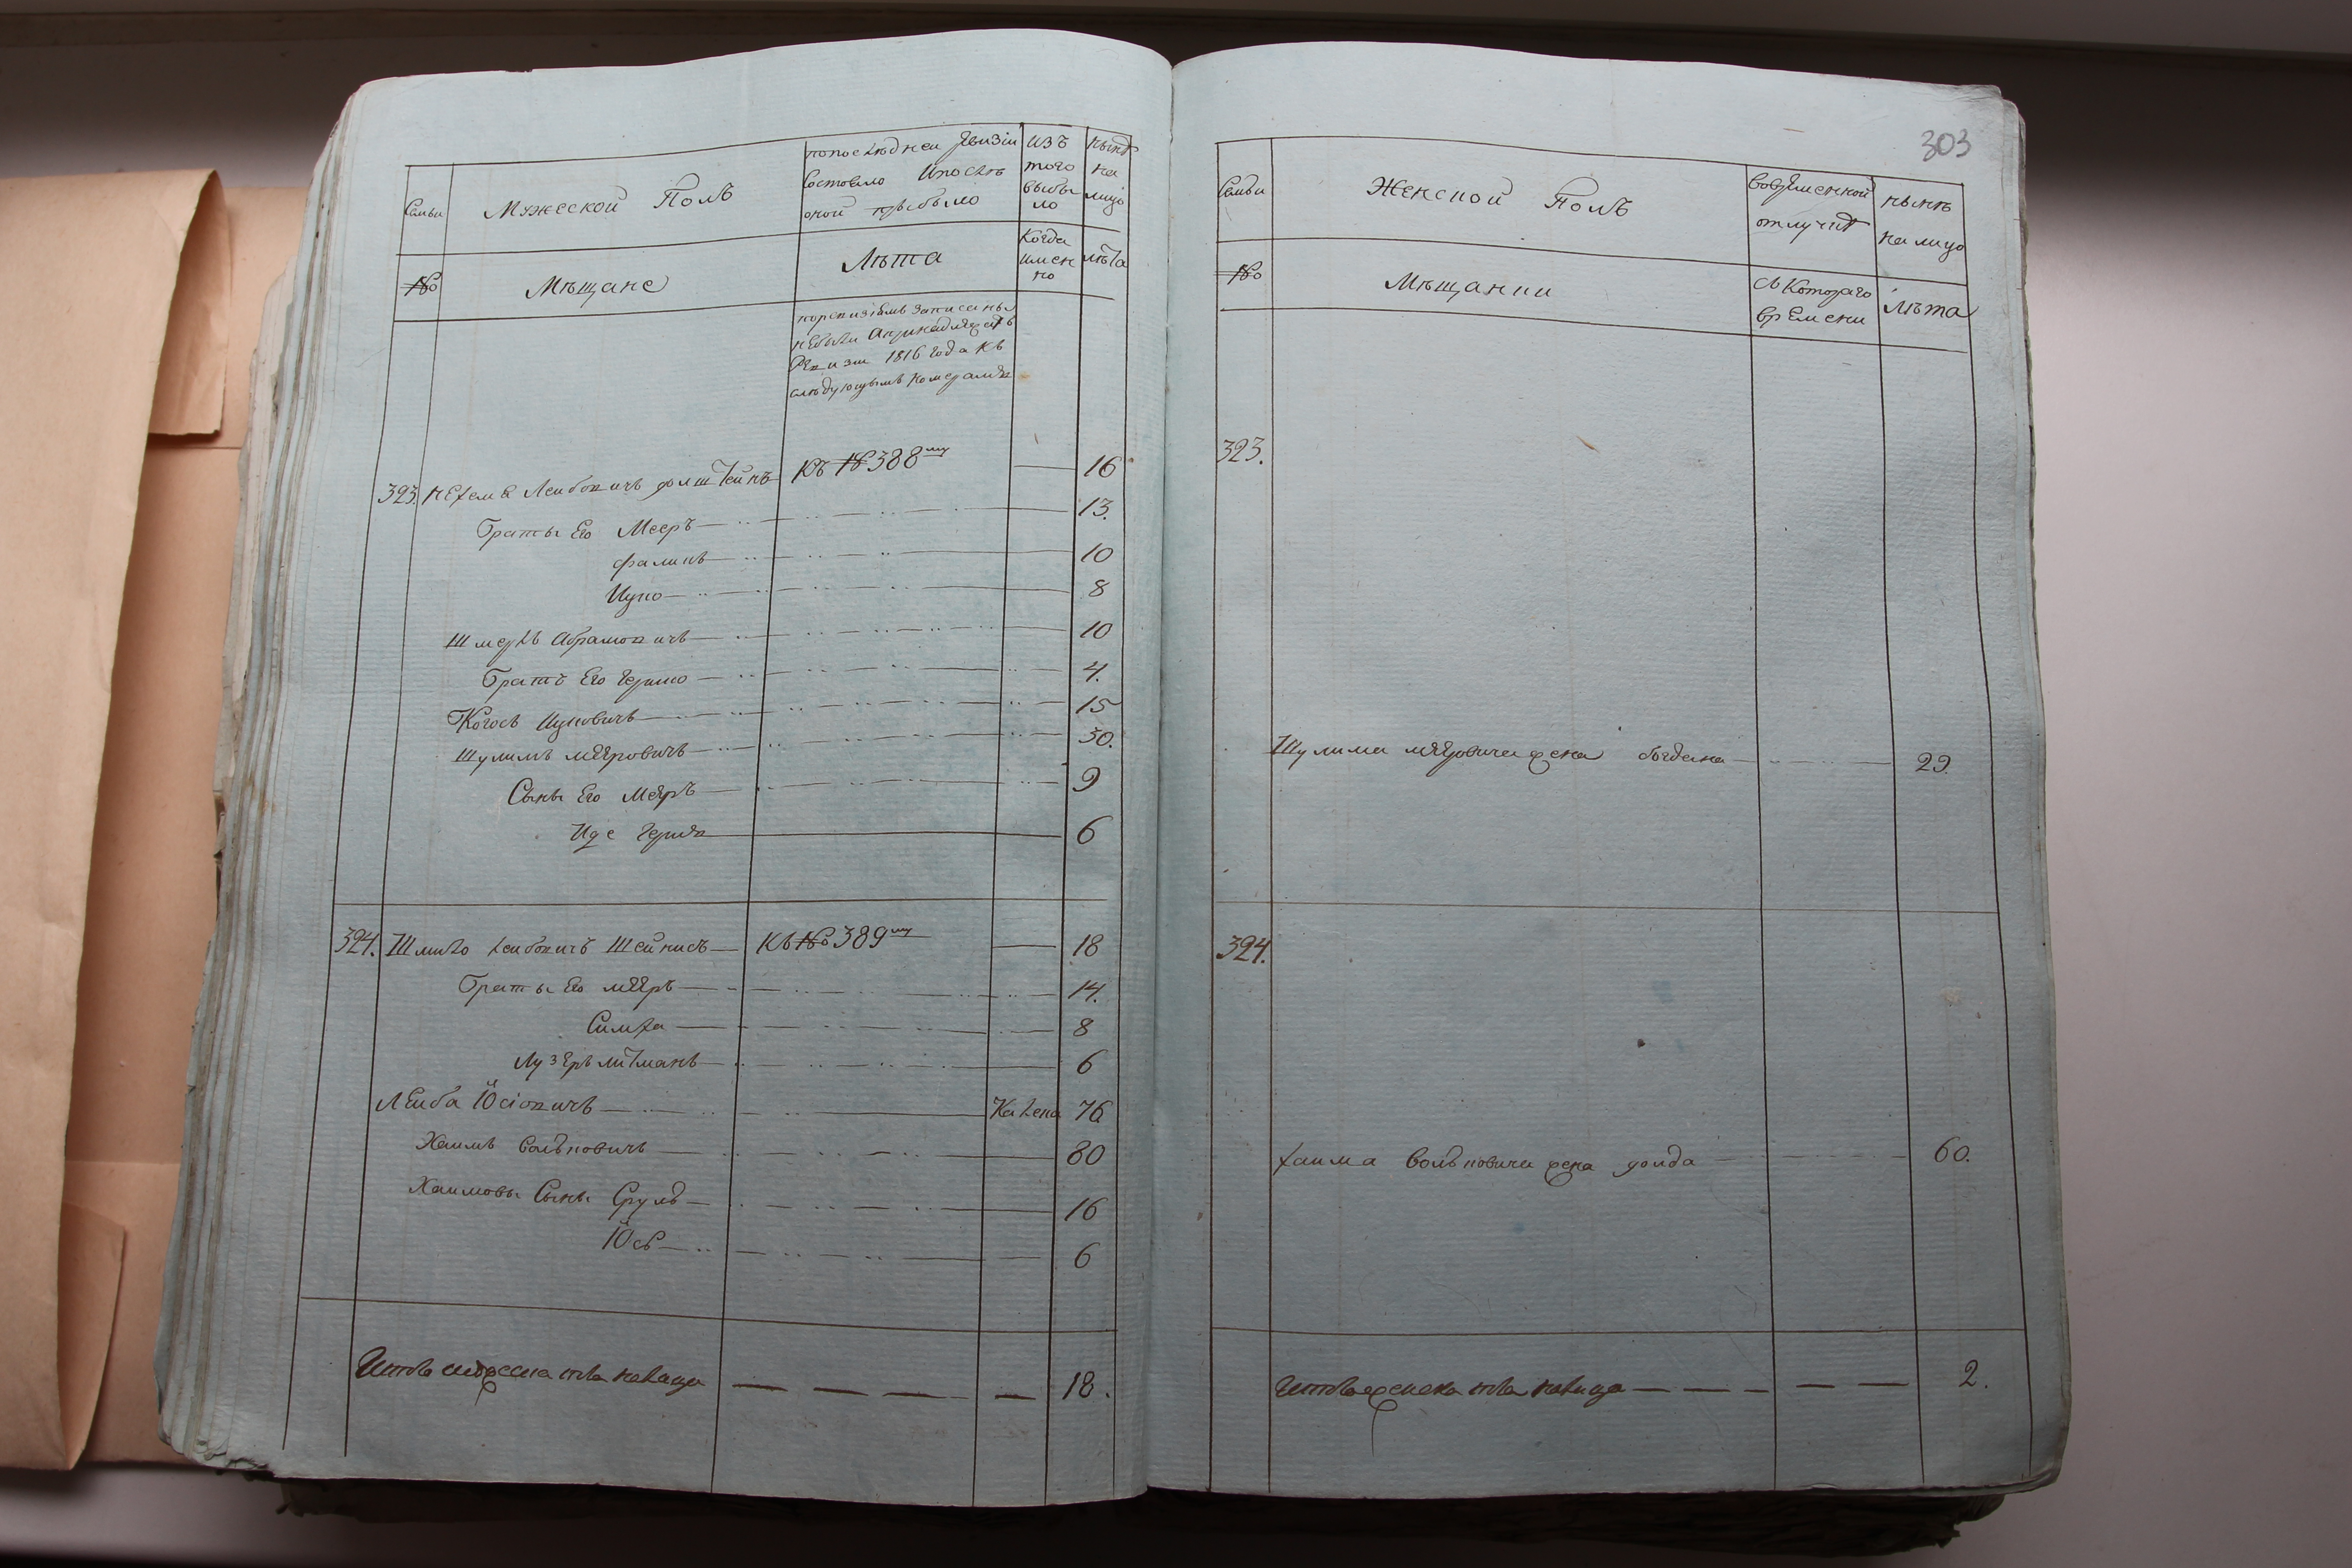 303
Семьи
Мужеской Полъ
по последней Ревизіи
состояло и после
оной прибыло
изъ
того
выбы
ло
ныне
на
лицо
№
Мѣщане
Лѣта
Когда
имен
но
лѣта
по ревизіямъ записаны
небыли а принадлежатъ
Ревизіи 1816 года къ
слѣдующымъ номерамъ
323. Нехемя Лейбовичъ Голштейнъ къ № 388му 16
Браты Его Мееръ 13.
Фаликъ 10
Ицко 8
Шмерль Абрамовичъ 10
Братъ Его Гершко 4.
Ицковичъ 15
Шулимъ Меяровичъ 30.
Сыны Его Меяръ 9
Иде Гершъ 6
324. Шмило Лейбовичъ Шейнисъ къ № 389му 18
Браты Его Меяръ 14.
Симха 8
Лузеръ Литманъ 6
Лейба Іосіовичъ Калека 76
Хаимъ Вольковичъ 80
Хаимовы Сыны Сруль 16
Іось 6
Итого мужеска пола налицо 18.
Семьи
Женской Полъ
во временной
отлучке
ныне
на лицо
№
Мѣщанки
съ Котораго
времени
Лѣта
323.
Шулима Меяровича жена Богдана 29.
324.
Хаима Вольковича жена Голда 60.
Итого женска пола налицо 2.